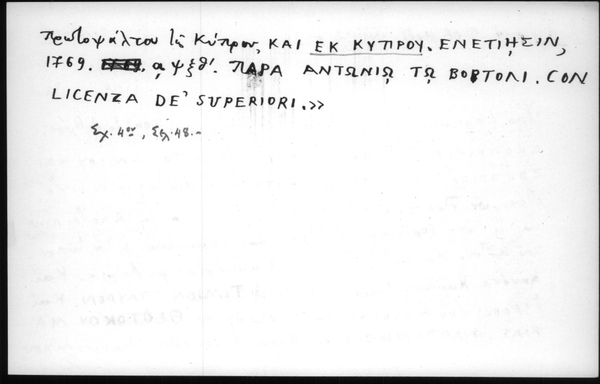 Πρωτοψάλτου τῆς Κύπρου, ΚΑΙ ΕΚ ΚΥΠΡΟΥ. ΕΝΕΤΙῌΣΙΝ,
1769. ͵αψξθ΄. ΠΑΡΑ ΑΝΤΩΝΙῼ Τῼ ΒΟΡΤΟΛΙ. CON
LICENZA DE' SUPERIORI.»
Σχ. 4ον, Σελ. 48.-